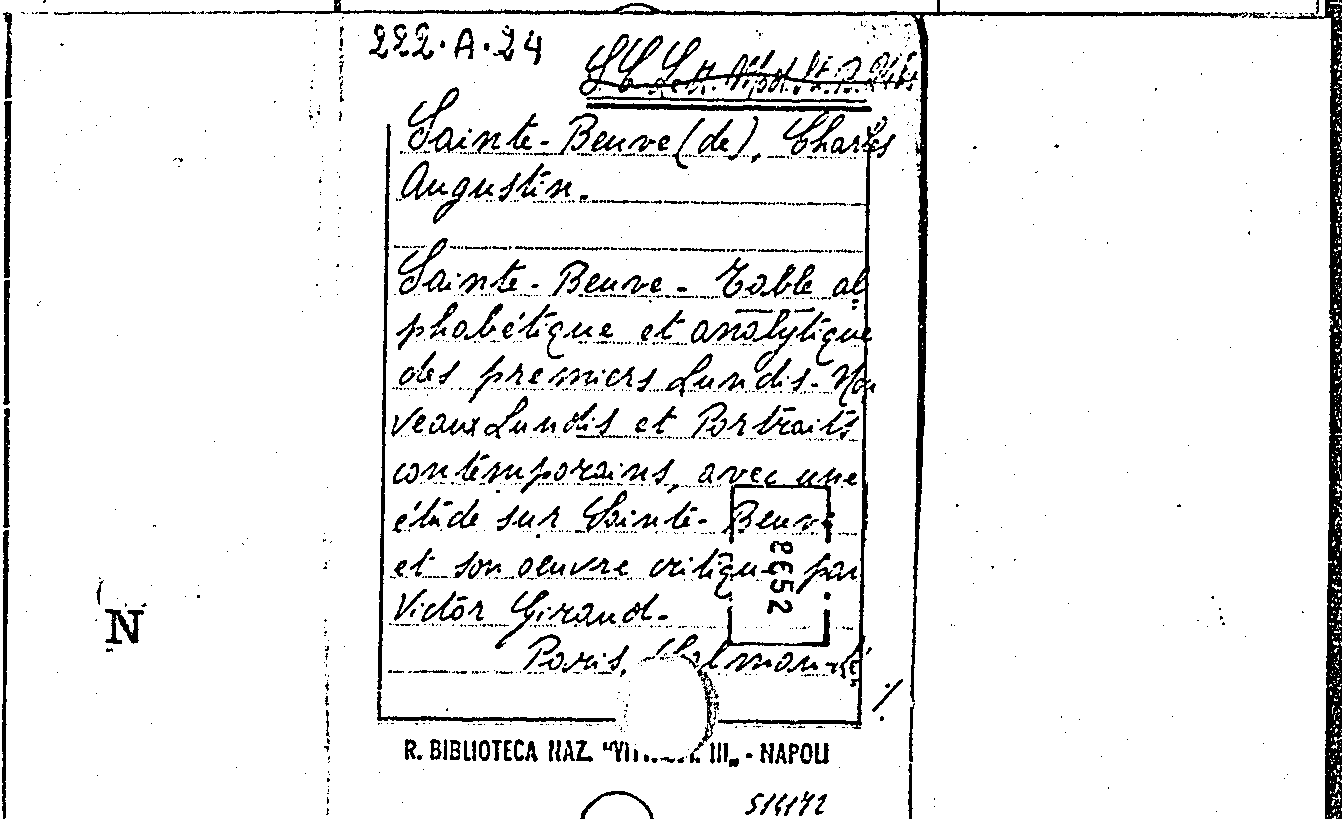 222.A.24
Sainte-Beuve (de), Charles
Augustin.
Sainte-Beuve - Table al
phabétique et analytique
des premiers Lundis - Nou
veaux Lundis et Portraits
contemporains, avec une
étude sur Sainte-Beuve
et son oeuvre critique par
Victor Giraud -
Paris,
2652
N
R. BIBLIOTECA NAZ. III„ - NAPOLI